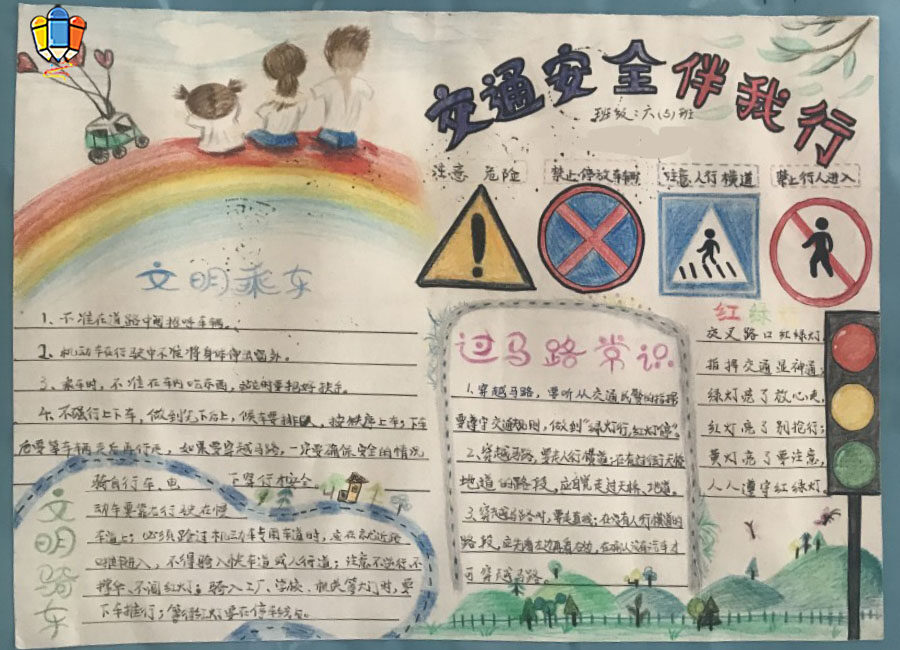 交通安全伴我行
班级:六(5)班
注意 危险
禁止停放车辆
注意人行横道
禁止行人进入
文明乘车
1、不准在道路中间招呼车辆。
2、机动车在行驶中不准将身体伸出窗外。
3、乘车时,不准在车内吃东西,站立时要扶好扶手。
4、不强行上下车,做到先下后上,候车要排队,按秩序上车;下车
后要等车辆走后再行走,如果要穿越马路,一定要确保安全的情况
下穿行
文明骑车
骑自行车、电
动车要靠右行驶在慢
车道上;必须路过机动车专用车道时,应在
不得骑入快车道或人行道;注意不逆行,不
不闯红灯;骑入工厂、学校、机关等大门时,要
下车推行;等
过马路常识
1、穿越马路,要听从交通民警的指挥
要遵守交通规则,做到“绿灯行,红灯停”。
2、穿越马路,要走人行横道;在有过街天桥
地道的路段,应自觉走过天桥、地道。
3、穿越马路时,要走直线;在没有人行横道的
路段,应先看左边再看右边,在确认没有汽车才
可穿越马路。
红绿
交叉路口红绿灯,
指挥交通显神通;
绿灯亮了放心走,
红灯亮了别抢行;
黄灯亮了要注意,
人人遵守红绿灯。